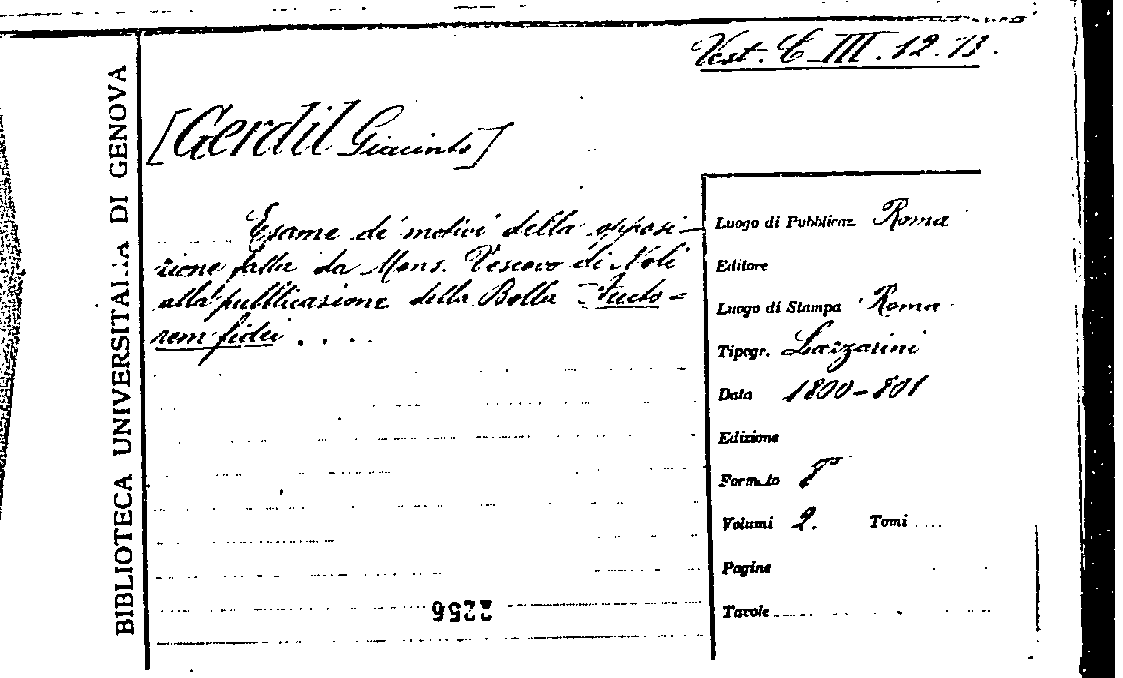 Vest. C. III. 12. 13.
BIBLIOTECA UNIVERSITARIA DI GENOVA
[Gerdil Giacinto]
Esame di motivi della opposi-
zione fatta da Mons. Vescovo di Noli
alla pubblicazione della Bolla Aucto-
rem fidei . . . .
Luogo di Pubblicaz. Roma
Editore
Luogo di Stampa Roma
Tipogr. Lazzarini
Data 1800-801
Edizione
Formato 8°
Volumi 2. Tomi
Pagine
Tavole
2256